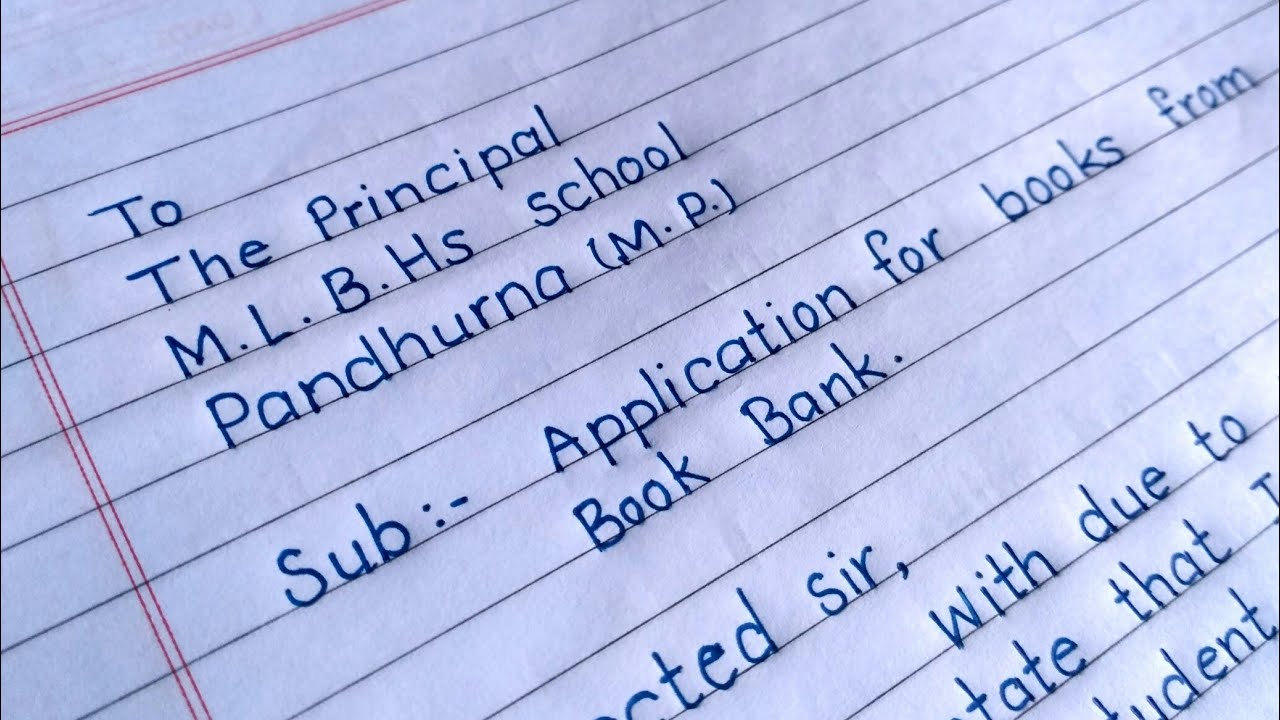 To
The Principal
M.L.B.Hs school
Pandhurna (M.P.)
Sub:- Application for books from
Book Bank.
cted sir,
With due to
tate that I
tudent